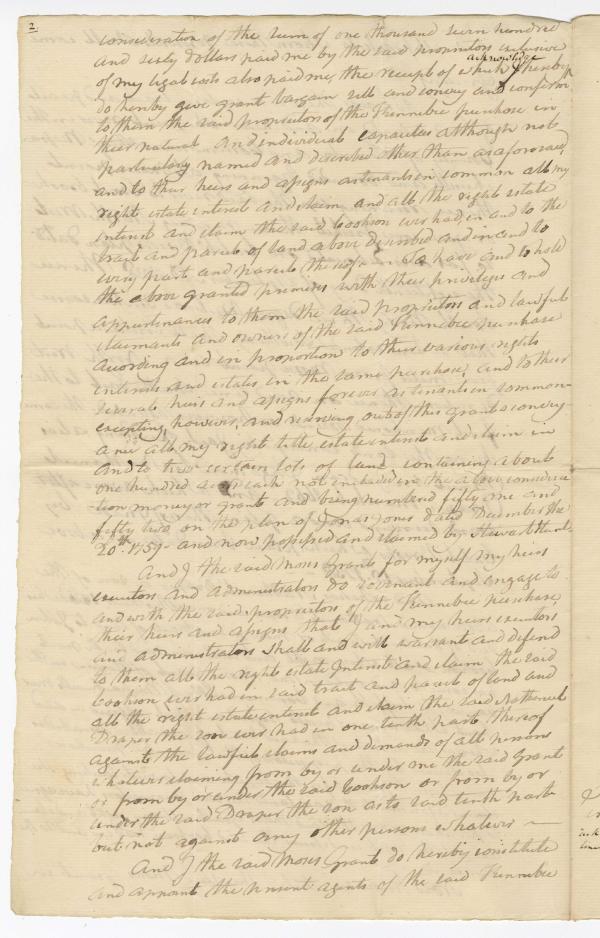 2
consideration of the sum of one thousand seven hundred
and sixty dollars paid me by the said proprietors exclusive
of my legal costs also paid me, the receipt of which I hereby
acknowledge
do hereby give grant bargain sell and convey and confirm
to them the said proprietors of the Kennebec purchase in
their natural and individual capacities although not
particularly named and described other than as aforesaid,
and to their heirs and assigns as tenants in common all my
right estate interest and claim and all the right estate
interest and claim the said Cookson ever had, in and to the
tract and parcels of land above described and in and to
every part and parcel thereof — To have and to hold
the above granted premises with their privileges and
appurtenances to them the said proprietors and lawful
claimants and owners of the said Kennebec purchase
according and in proportion to their various rights
interests and estates in the same purchase, and to their
several heirs and assigns forever as tenants in common –
excepting, however, and reserving out of this grant & convey-
ance all my right title estate interest and claim in
and to two certain lots of land containing about
one hundred acres each not included in the above considera
tion money or grant and being numbered fifty one and
fifty two on the plan of Jonas Jones dated December the
20th. 1759 – and now possessed and claimed by Stewart Hunt –
And I the said Moses Grant for myself my heirs
executors and administrators do covenant and engage to
and with the said proprietors of the Kennebec purchase,
their heirs and assigns that I and my heirs executors
and administrators shall and will warrant and defend
to them all the right estate Interest and claim the said
Cookson ever had in said tract and parcels of land and
all the right estate interest and claim the said Nathaniel
Draper the son ever had in one tenth part thereof
against the lawful claims and demands of all persons
whatever claiming from by or under me the said Grant
or from by or under the said Cookson or from by or
under the said Draper the son as to said tenth part
but not against any other persons whatever —
And I the said Moses Grant do hereby constitute
and appoint the present agents of the said Kennebec